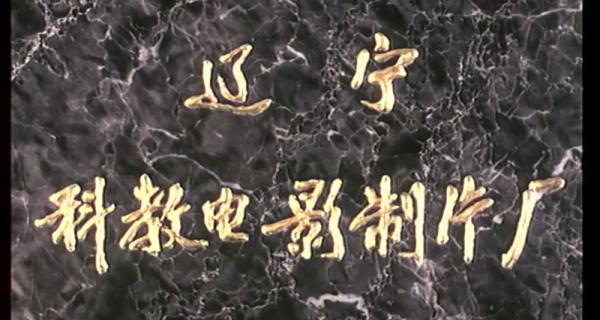 辽宁
科教电影制片厂